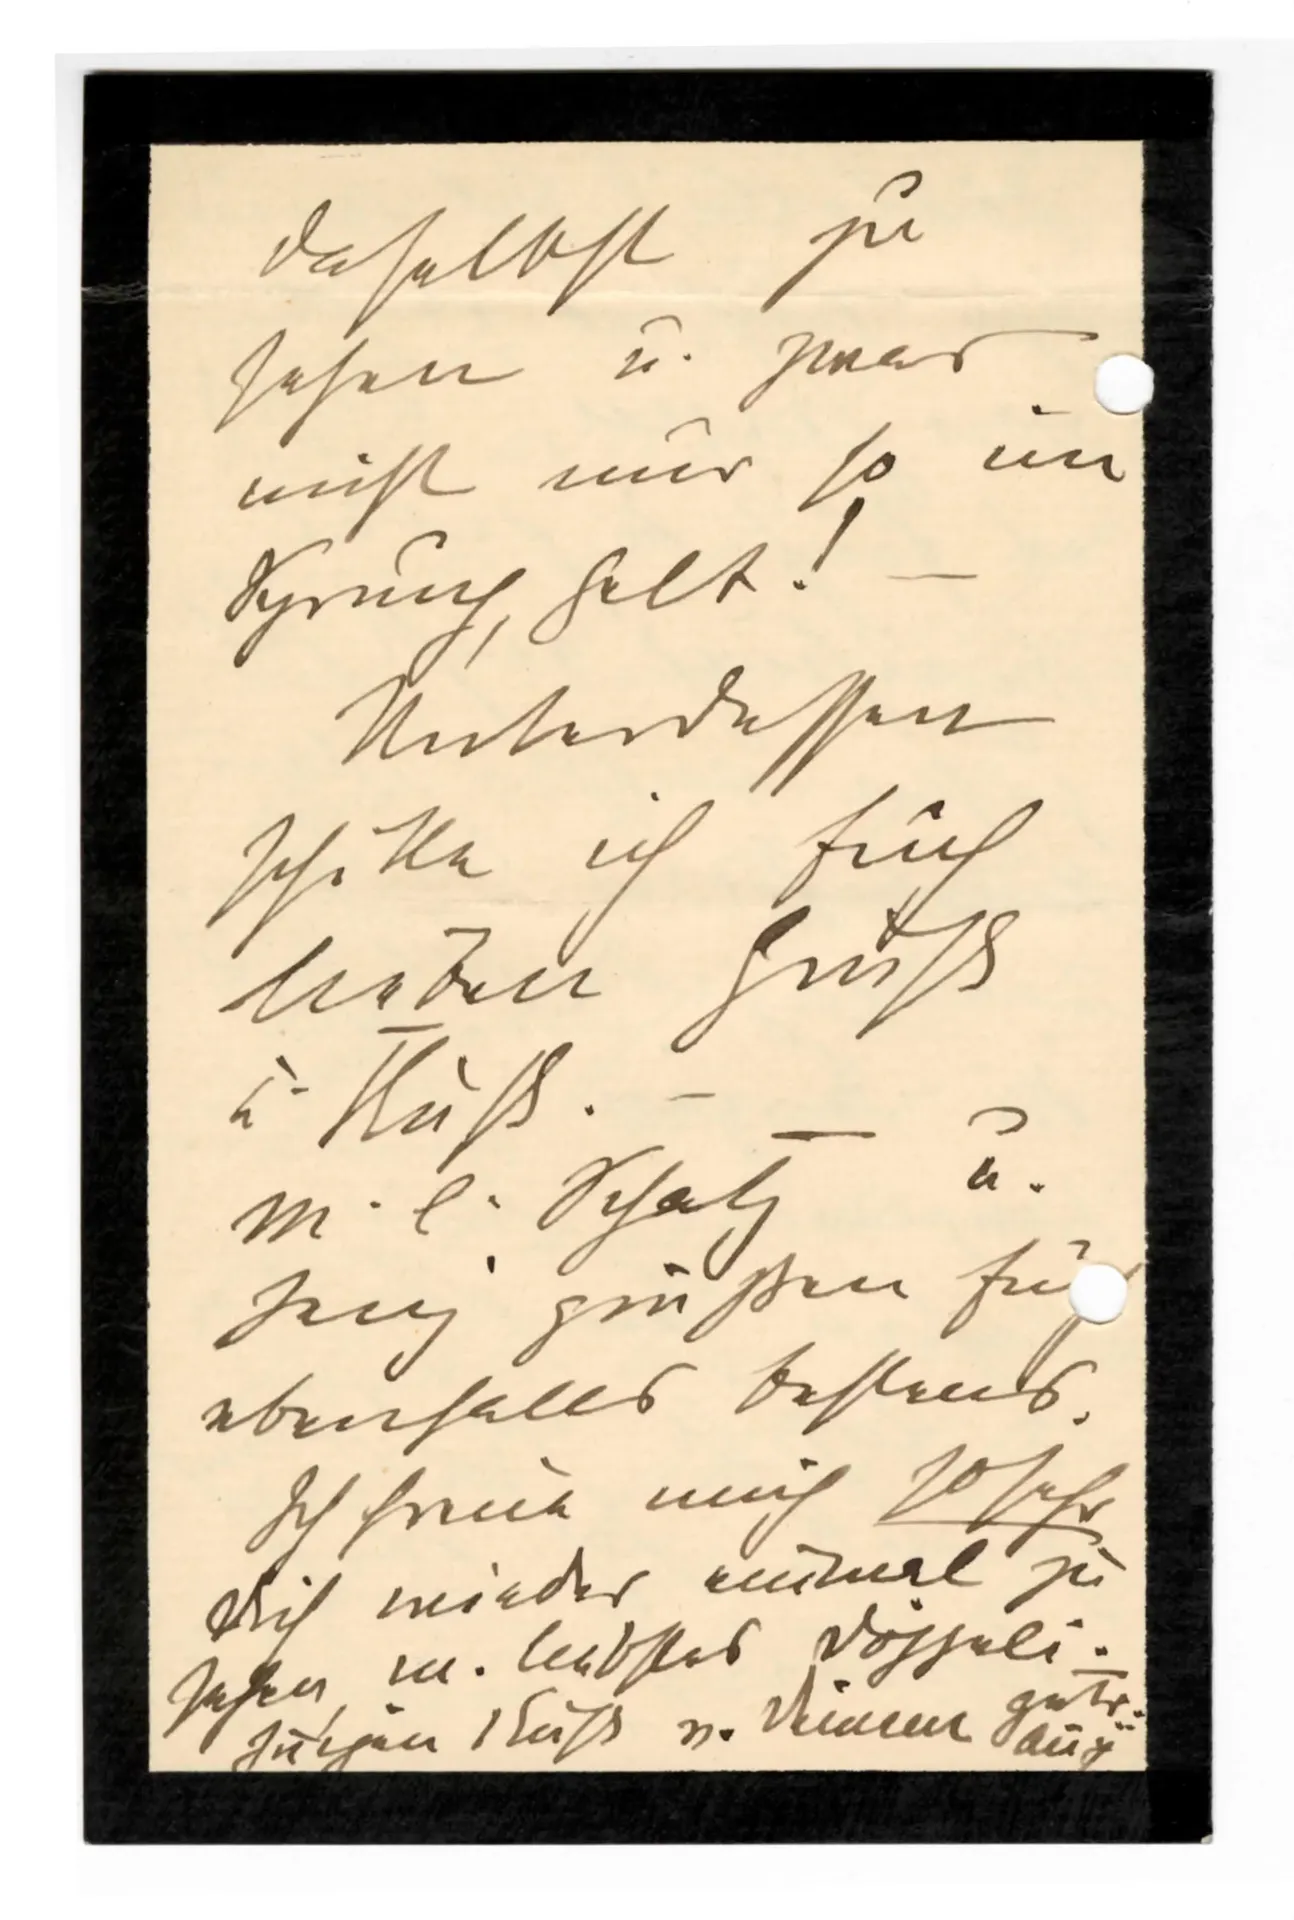 daselbst zu
sehen u. zwar
nicht nur so im
Sprung, gelt! —
Unterdessen
schicke ich Euch
lieben Gruß
u. Kuß. —
M. l. Schatz u.
grüßen Euch
ebenfalls bestens.
Ich freue mich so sehr
Dich wieder einmal zu
sehen, m. liebstes Döggeli.
Kuß v. Deinem getr.